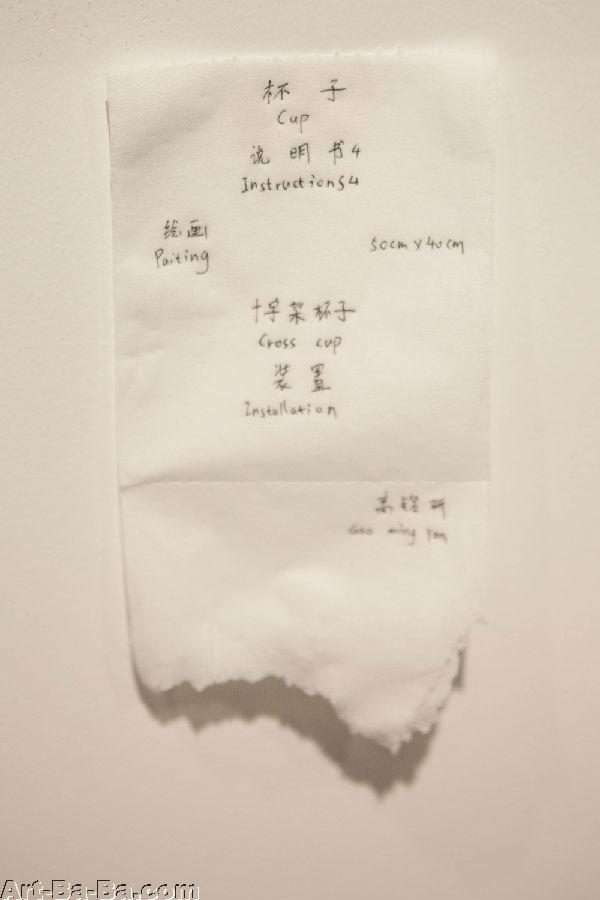 杯子
Cup
说明书4
Instructions4
绘画
Paiting
50cm x 40cm
十字架杯子
Cross cup
装置
Installation
高铭研
Gao ming Yan
Art-Ba-Ba.com